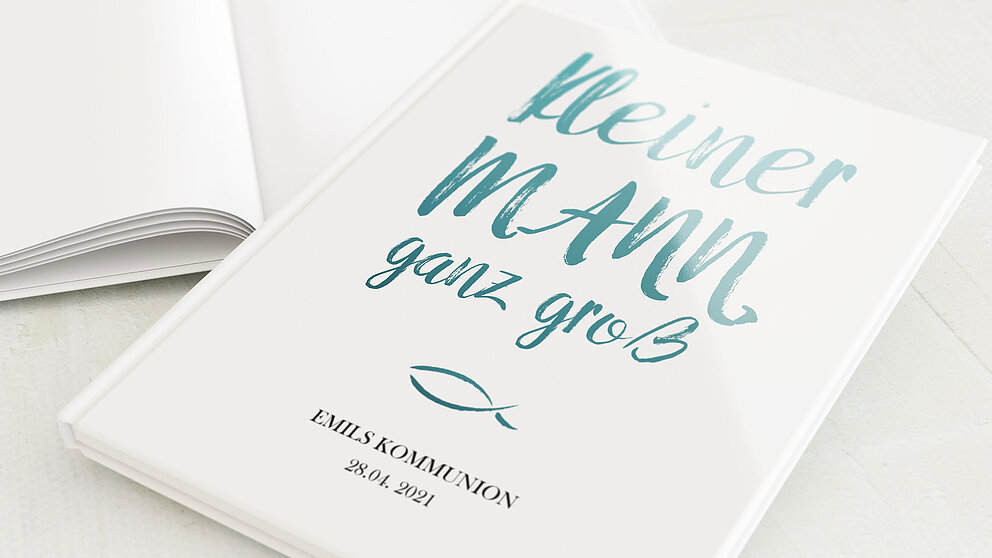 kleiner
MANN
ganz groß
EMILS KOMMUNION
28.04. 2021